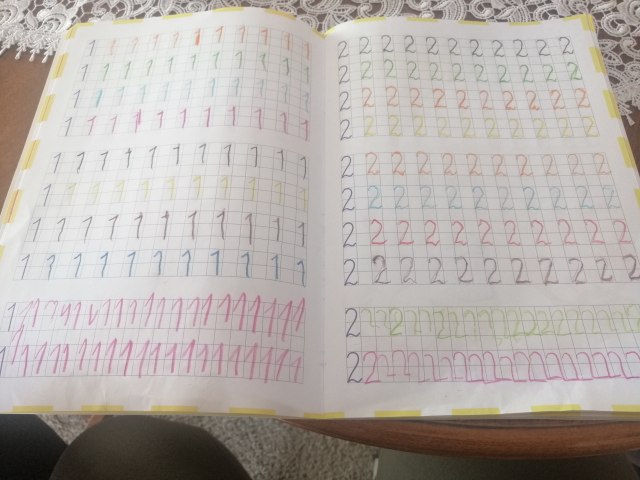 1 1 1 1 1 1 1 1 1 1 1
1 1 1 1 1 1 1 1 1 1 1
1 1 1 1 1 1 1 1 1 1 1
1 1 1 1 1 1 1 1 1 1 1
1 1 1 1 1 1 1 1 1 1 1
1 1 1 1 1 1 1 1 1 1 1
1 1 1 1 1 1 1 1 1 1 1
1 1 1 1 1 1 1 1 1 1 1
1 1 1 1 1 1 1 1 1 1 1 1 1 1 1 1 1 1 1 1 1
1 1 1 1 1 1 1 1 1 1 1 1 1 1 1 1 1 1 1 1 1
2 2 2 2 2 2 2 2 2 2 2
2 2 2 2 2 2 2 2 2 2 2
2 2 2 2 2 2 2 2 2 2 2
2 2 2 2 2 2 2 2 2 2 2
2 2 2 2 2 2 2 2 2 2 2
2 2 2 2 2 2 2 2 2 2 2
2 2 2 2 2 2 2 2 2 2 2
2 2 2 2 2 2 2 2 2 2 2
2 2 2 2 2 2 2 2 2 2 2 2 2 2 2 2 2 2 2 2
2 2 2 2 2 2 2 2 2 2 2 2 2 2 2 2 2 2 2 2